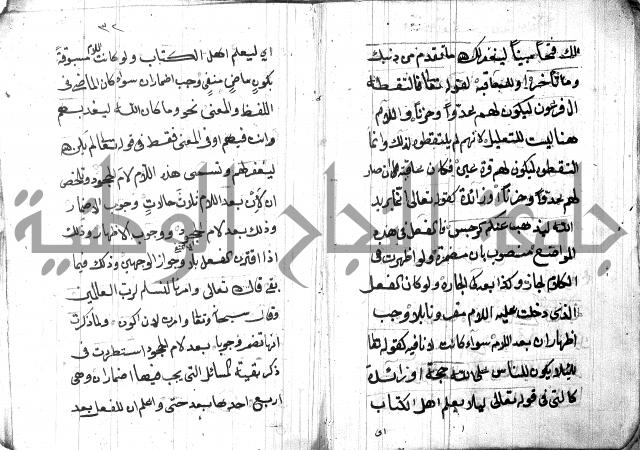 لك فتحا مبينا ليغفر لك الله ما تقدم من ذنبك
وما تأخر او للعاقبة كقوله تعالى فالتقطه
ال فرعون ليكون لهم عدوا وحزنا واللام
هنا ليست للتعليل لأنهم لم يلتقطوه لذلك وانما
التقطوه ليكون لهم قرة عين فكان عاقبته ان صار
لهم عدوا وحزنا او زائدة كقوله تعالى انما يريد
الله ليذهب عنكم الرجس فالفعل في هذه
المواضع منصوب بان مضمرة ولو اظهرت في
الكلام لجاز وكذا بعد كي الجارة ولو كان الفعل
الذي دخلت عليه اللام مقرونا بلا وجب
اظهار ان بعد اللام سواء كانت لا نافية كقوله
لئلا يكون للناس على الله حجة او زائدة
كالتي في قوله تعالى لئلا يعلم اهل الكتاب
اي
٣٢
اي ليعلم اهل الكتاب ولو كانت اللام مسبوقة
بكون ماض منفي وجب اضمار ان سواء كان المضي في
اللفظ والمعنى نحو وما كان الله ليعذبهم
وانت فيهم او في المعنى فقط في قوله تعالى لم يكن الله
ليغفر لهم وتسمى هذه اللام لام الجحود وتلخص
ان لأن بعد اللام ثلاث حالات وجوب الاضمار
وذلك بعد لام الجحود ووجوب الاظهار وذلك
اذا اقترن الفعل بلا وجواز الوجهين وذلك فيما
بقي قال الله تعالى وامرنا لنسلم لرب العالمين
وقال سبحانه وتعالى وامرت لان اكون ولما ذكرت
انها تضمر وجوبا بعد لام الجحود استطردت في
ذكر بقية المسائل التي يجب فيها اضمار ان وهي
اربع احداها بعد حتى واعلم ان للفعل بعد
جامعة النجاح الوطنية